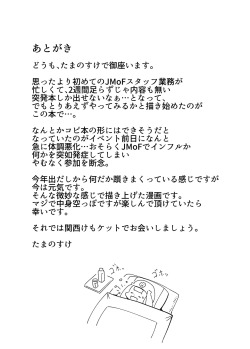 あとがき
どうも、たまのすけで御座います。
思ったより初めてのJMoFスタッフ業務が
忙しくて、2週間足らずじゃ内容も無い
突発本しか出せないなぁ…となって、
でもとりあえずやってみるかと描き始めたのが
この本で…。
なんとかコピ本の形にはできそうだと
なっていたのがイベント前日になんと
急に体調悪化…おそらくJMoFでインフルか
何かを突如発症してしまい
やむなく参加を断念。
今年出だしから何だか躓きまくっている感じですが
今は元気です。
そんな微妙な感じで描き上げた漫画です。
マジで中身空っぽですが楽しんで頂けていたら
幸いです。
それでは関西けもケットでお会いしましょう。
たまのすけ
ゴホッ
ゴホッ